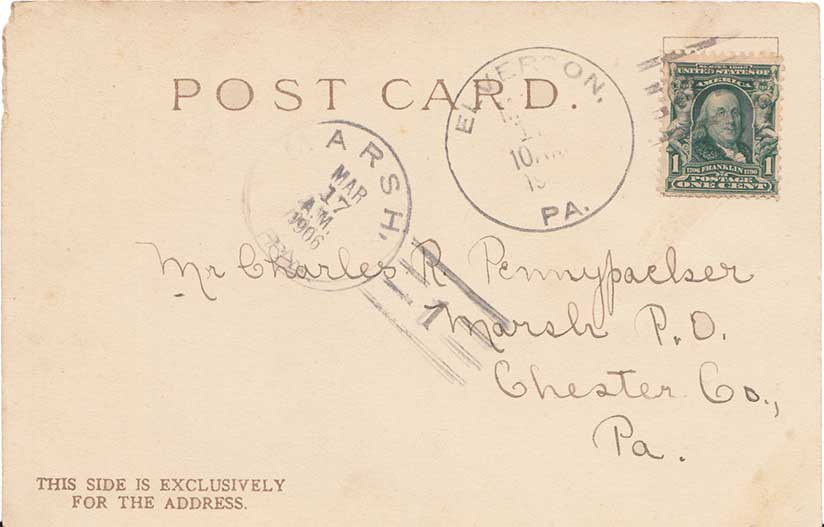 POST CARD.
ELVERSON,
10
PA.
MARSH.
MAR
17
A.M.
1906
1
SERIES 1902
UNITED STATES OF
AMERICA
1 1
1706 FRANKLIN 1790
POSTAGE
ONE CENT
Mr Charles R. Pennypacker
Marsh P.O.
Chester Co.,
Pa.
THIS SIDE IS EXCLUSIVELY
FOR THE ADDRESS.